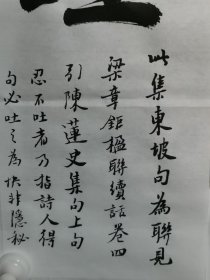 此集東坡句為聯見
梁章鉅楹聯續話卷四
引陳蓮史集句上句
忍不吐者乃指詩人得
句必吐之為快非隱秘